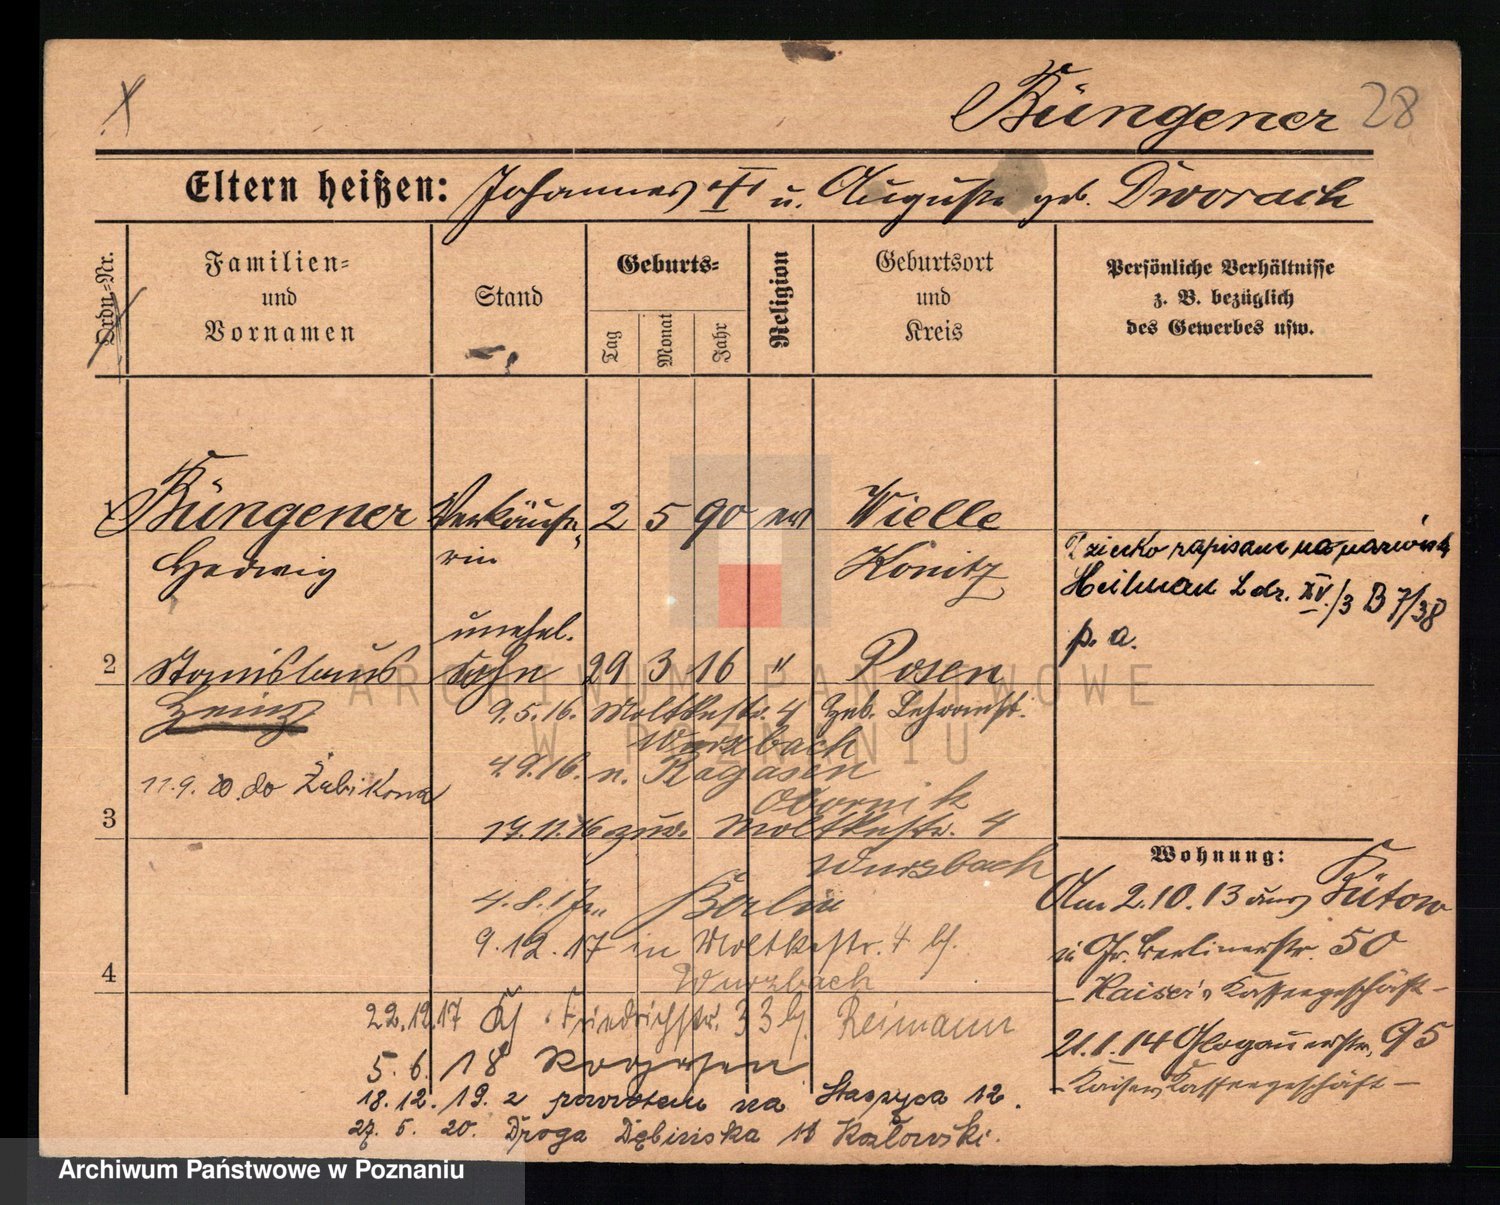 Büngener 28
Eltern heißen: Johannes † u. Auguste geb. Dworack
Ordn.-Nr.
Familien-
und
Vornamen
Stand
Geburts-
Tag
Monat
Jahr
Religion
Geburtsort
und
Kreis
Persönliche Verhältnisse
z. B. bezüglich
des Gewerbes usw.
1 Büngener Verkäufe- 2 5 90 ev Wielle
Hedwig rin Konitz
Dziecko zapisane na nazwisko
Heilman Ldr. XV./3 B 7/38
p. a.
unehel.
2 Stanislaus Sohn 29 3 16 " Posen
Heinz
9.5.16. Moltkestr. 4 Heb. Lehranst.
Wurzbach
4.9.16. n. Ragasen
Obornik
11.9.20. do Żabikowa
3
17.11.16 zur. Moltkestr. 4
Wurzbach
4.8.17 n. Berlin
9.12.17 in Moltkestr. 4 bj.
Wurzbach
4
22.12.17 Friedrichstr. 33 bj. Reimann
5.6.18 Rogasen
18.12.19. z powrotem na Staszyca 12.
27.5.20. Droga Dębińska 18 Kozłowski.
Wohnung:
Am 2.10.13 aus Bütow
in Gr. Berlinerstr. 50
- Kaiser's Kaffeegeschäft -
21.1.14 Glogauerstr. 95
- Kaisers Kaffeegeschäft -
ARCHIWUM PAŃSTWOWE
W POZNANIU
Archiwum Państwowe w Poznaniu